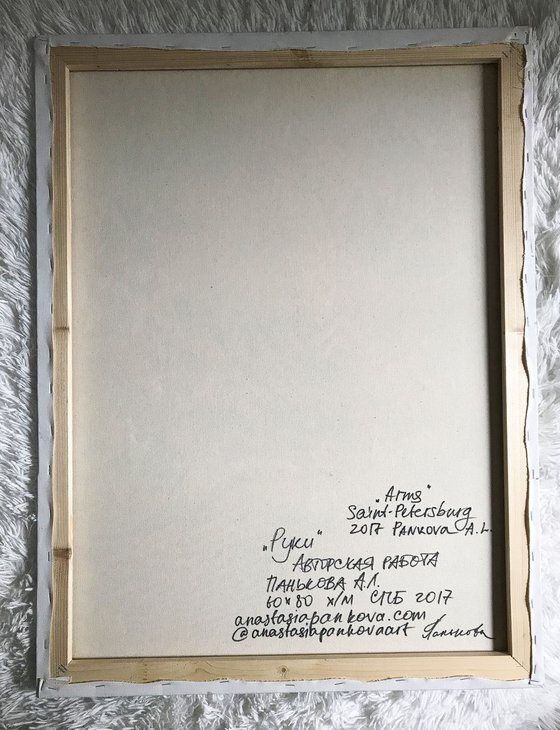 „Arms“
Saint-Petersburg
2017 PANKOVA A.L.
„Руки“
АВТОРСКАЯ РАБОТА
ПАНЬКОВА А.Л.
60×80 х/м СПБ 2017
anastasiapankova.com
@anastasiapankovaart Панькова